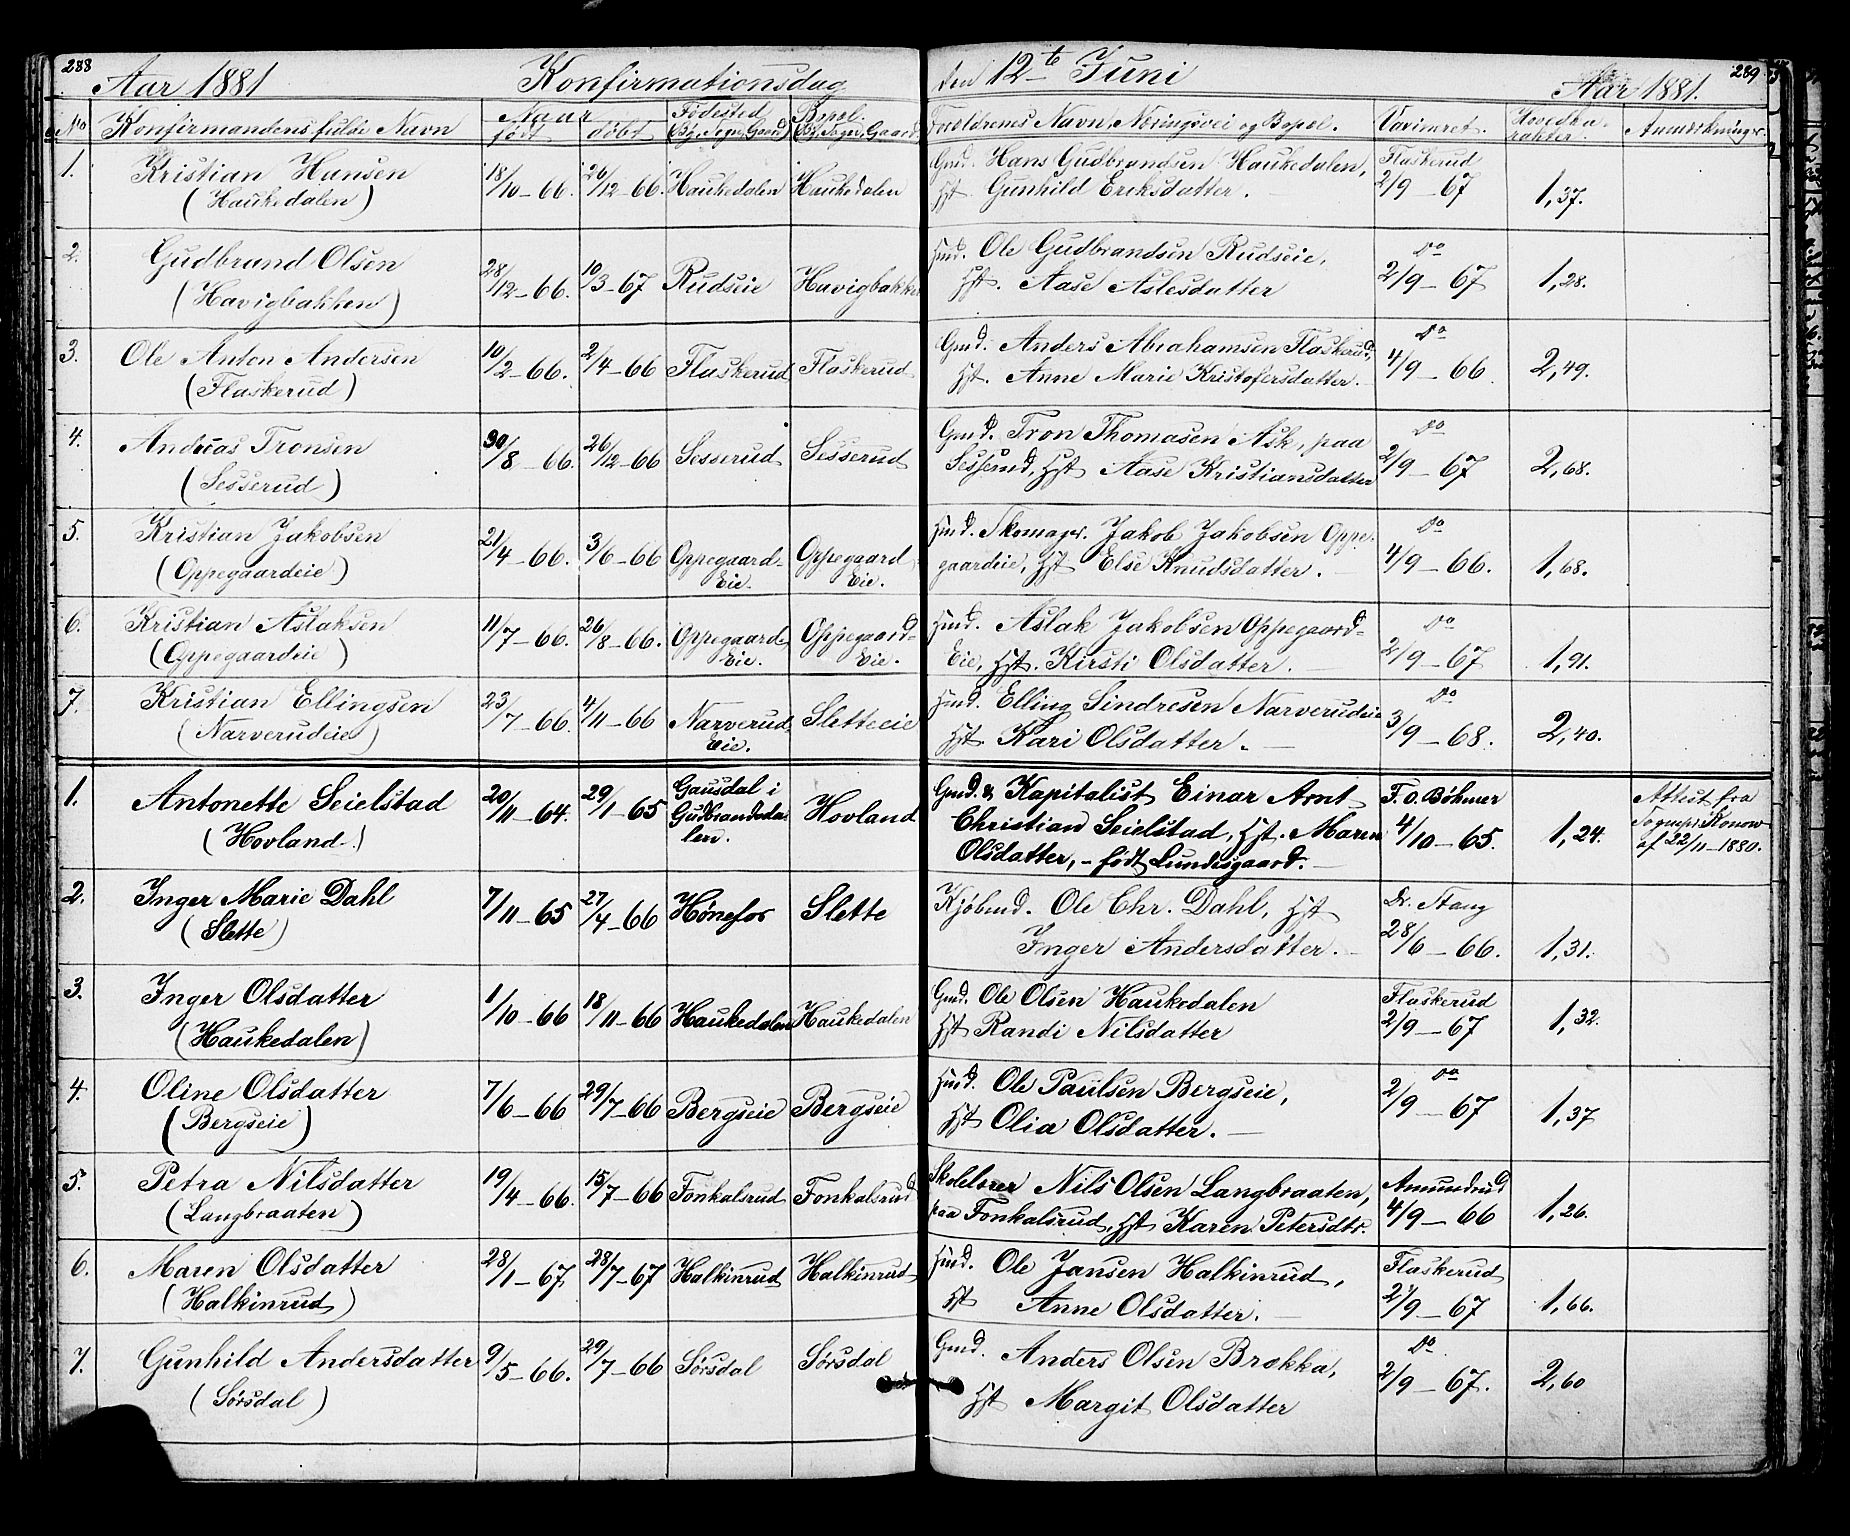 288
Aar 1881 Konfirmationsdag den 12te Juni Aar 1881. 289
No Konfirmandens fulde Navn Naar Födested Bopel. Foreldrenes Navn, Næringsvei og Bopel. Vaccineret. Hovedka-
född döbt (By, Sogn, Gaard) (By, Sogn, Gaard) rakter. Anmerkninger.
1. Kristian Hansen 18/10-66. 26/12-66. Haukedalen Haukedalen Gmd. Hans Gudbrandsen Haukedalen, Flaskerud
(Haukedalen) Hst. Gunhild Eriksdatter. 2/9-67 1,37.
2. Gudbrand Olsen 28/12-66. 10/3-67 Rudseie Havigbakken Hmd. Ole Gudbrandsen Rudseie, Do
(Havigbakken) Hst. Aase Aslesdatter 2/9-67 1,28.
3. Ole Anton Andersen 10/2-66. 2/4-66 Flaskerud Flaskerud Gmd. Anders Abrahamsen Flaskerud, Do
(Flaskerud) Hst. Anne Marie Kristofersdatter. 4/9-66. 2,49.
4. Andreas Tronsen 30/8-66. 26/12-66 Sesserud Sesserud Gmd. Tron Thomasen Ask, paa Do
(Sesserud) Sesserud, Hst Aase Kristiansdatter 2/9-67 2,68.
5. Kristian Jakobsen 21/4-66. 3/6-66 Oppegaard- Oppegaard Hmd. Skomager. Jakob Jakobsen Oppe- Do
(Oppegaardeie) Eie. Eie. gaardeie, Hst Else Knudsdatter. 4/9-66. 1,68.
6. Kristian Aslaksen 11/7-66. 26/8-66. Oppegaard- Oppegaard- Hmd. Aslak Jakobsen Oppegaard- Do
(Oppegaardeie) Eie. Eie. Eie, Hst. Kirsti Olsdatter. 2/9-67 1,91.
7. Kristian Ellingsen 23/7-66. 4/11-66 Narverud- Sletteeie Hmd. Elling Sindresen Narverudeie Do
(Narverudeie) Eie. Hst. Kari Olsdatter. 3/9-68. 2,40.
1. Antonette Seielstad 20/11-64. 29/1-65 Gausdal i Hovland Gmd. & Kapitalist Einar Arnt F. O. Böhmer Attest fra
(Hovland.) Gudbrandsda- Christian Seielstad, Hst. Maren 4/10-65. 1,24. Sognepr. Konow
len. Olsdatter, - födt Lundesgaard. af 22/11-1880.
2. Inger Marie Dahl 7/11-65 27/4-66 Hönefos Slette Kjöbmd. Ole Chr. Dahl, Hst Dr. Stang
(Slette) Inger Andersdatter. 28/6-66. 1,31.
3. Inger Olsdatter 1/10-66 18/11-66 Haukedalen Haukedalen Gmd. Ole Olsen Haukedalen Flaskerud
(Haukedalen) Hst Randi Nilsdatter 2/9-67 1,32.
4. Oline Olsdatter 7/6-66 29/7-66 Bergseie Bergseie Hmd. Ole Paulsen Bergseie, Do
(Bergseie) Hst Olia Olsdatter. 2/9-67 1,37
5. Petra Nilsdatter 19/4-66. 15/7-66 Fonkalsrud Fonkalsrud Skolelærer Nils Olsen Langbraaten, Amundrud
(Langbraaten) paa Fonkalsrud, Hst Karen Petersdtr. 4/9-66 1,26.
6. Maren Olsdatter 28/1-67. 28/7-67 Halkinrud Halkinrud Hmd. Ole Jansen Halkinrud, Flaskerud
(Halkinrud) Hst Anne Olsdatter. 2/9-67 1,66.
7. Gunhild Andersdatter 9/5-66. 29/7-66 Sörsdal Sörsdal Gmd. Anders Olsen Brækka, Do
(Sörsdal) Hst Margit Olsdatter 2/9-67. 2,60